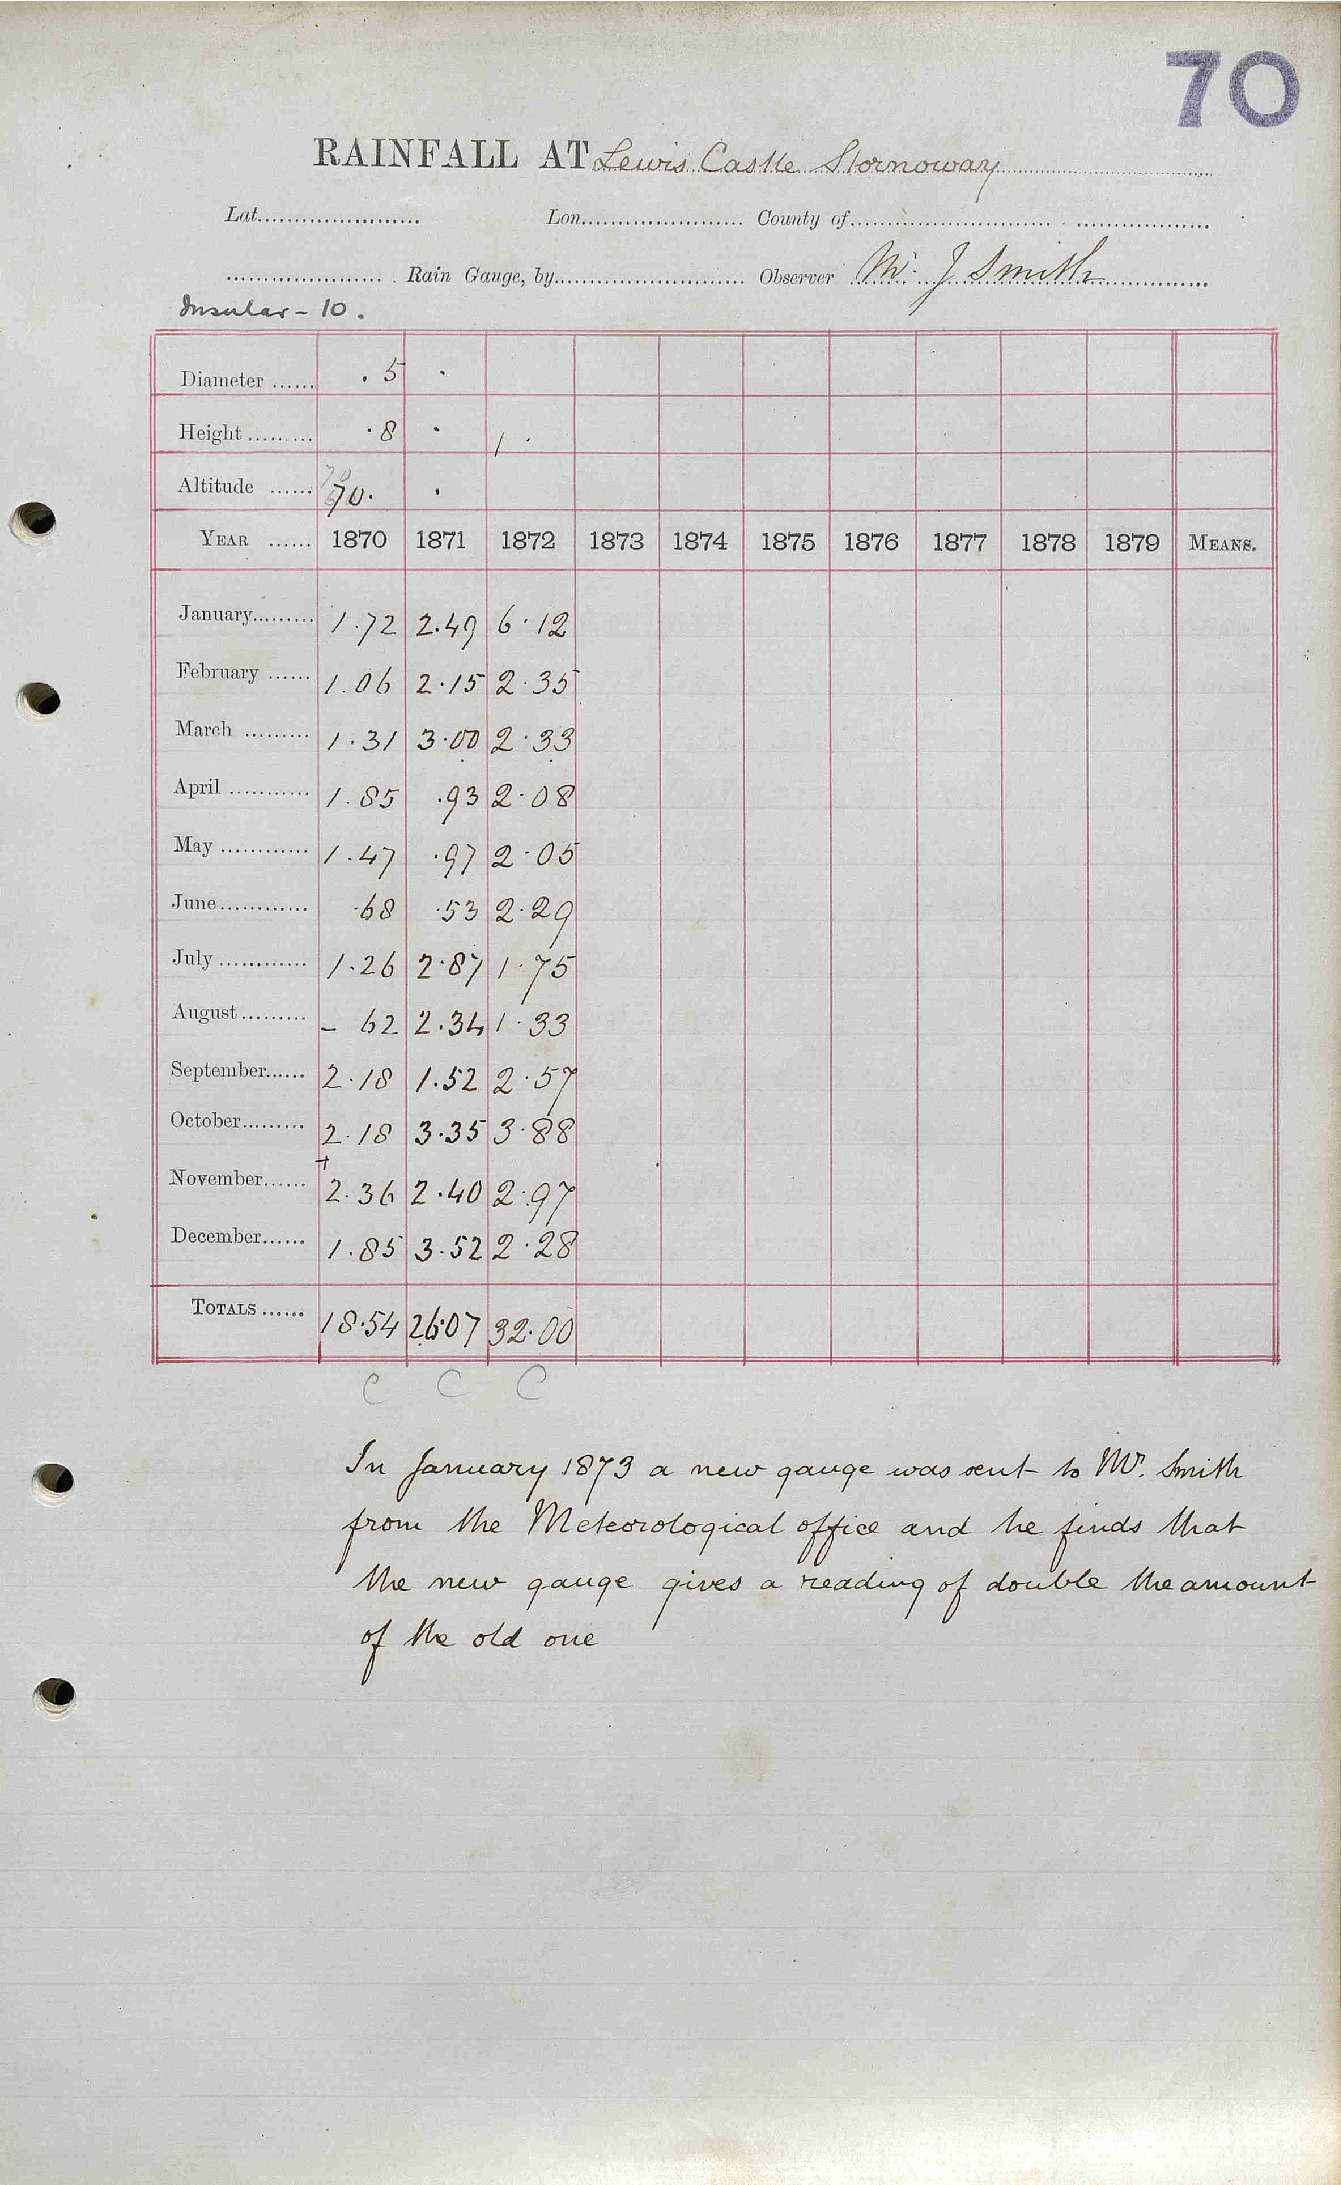 70
RAINFALL AT Lewis Castle Stornoway
Lat...................... Lon...................... County of......................
...................... Rain Gauge, by...................... Observer Mr. J Smith
Insular - 10.
Diameter ...... .5 .
Height ......... .8 . 1 .
Altitude ...... 70. .
YEAR ...... 1870 1871 1872 1873 1874 1875 1876 1877 1878 1879 MEANS.
January......... 1.72 2.49 6.12
February ...... 1.06 2.15 2.35
March ......... 1.31 3.00 2.33
April ........... 1.85 .93 2.08
May ............ 1.47 .97 2.05
June............ .68 .53 2.29
July ............ 1.26 2.87 1.75
August ......... - 62 2.34 1.33
September...... 2.18 1.52 2.57
October......... 2.18 3.35 3.88
November...... + 2.36 2.40 2.97
December...... 1.85 3.52 2.28
TOTALS ...... 18.54 26.07 32.00
C C C
In January 1873 a new gauge was sent to Mr. Smith
from the Meteorological office and he finds that
the new gauge gives a reading of double the amount
of the old one